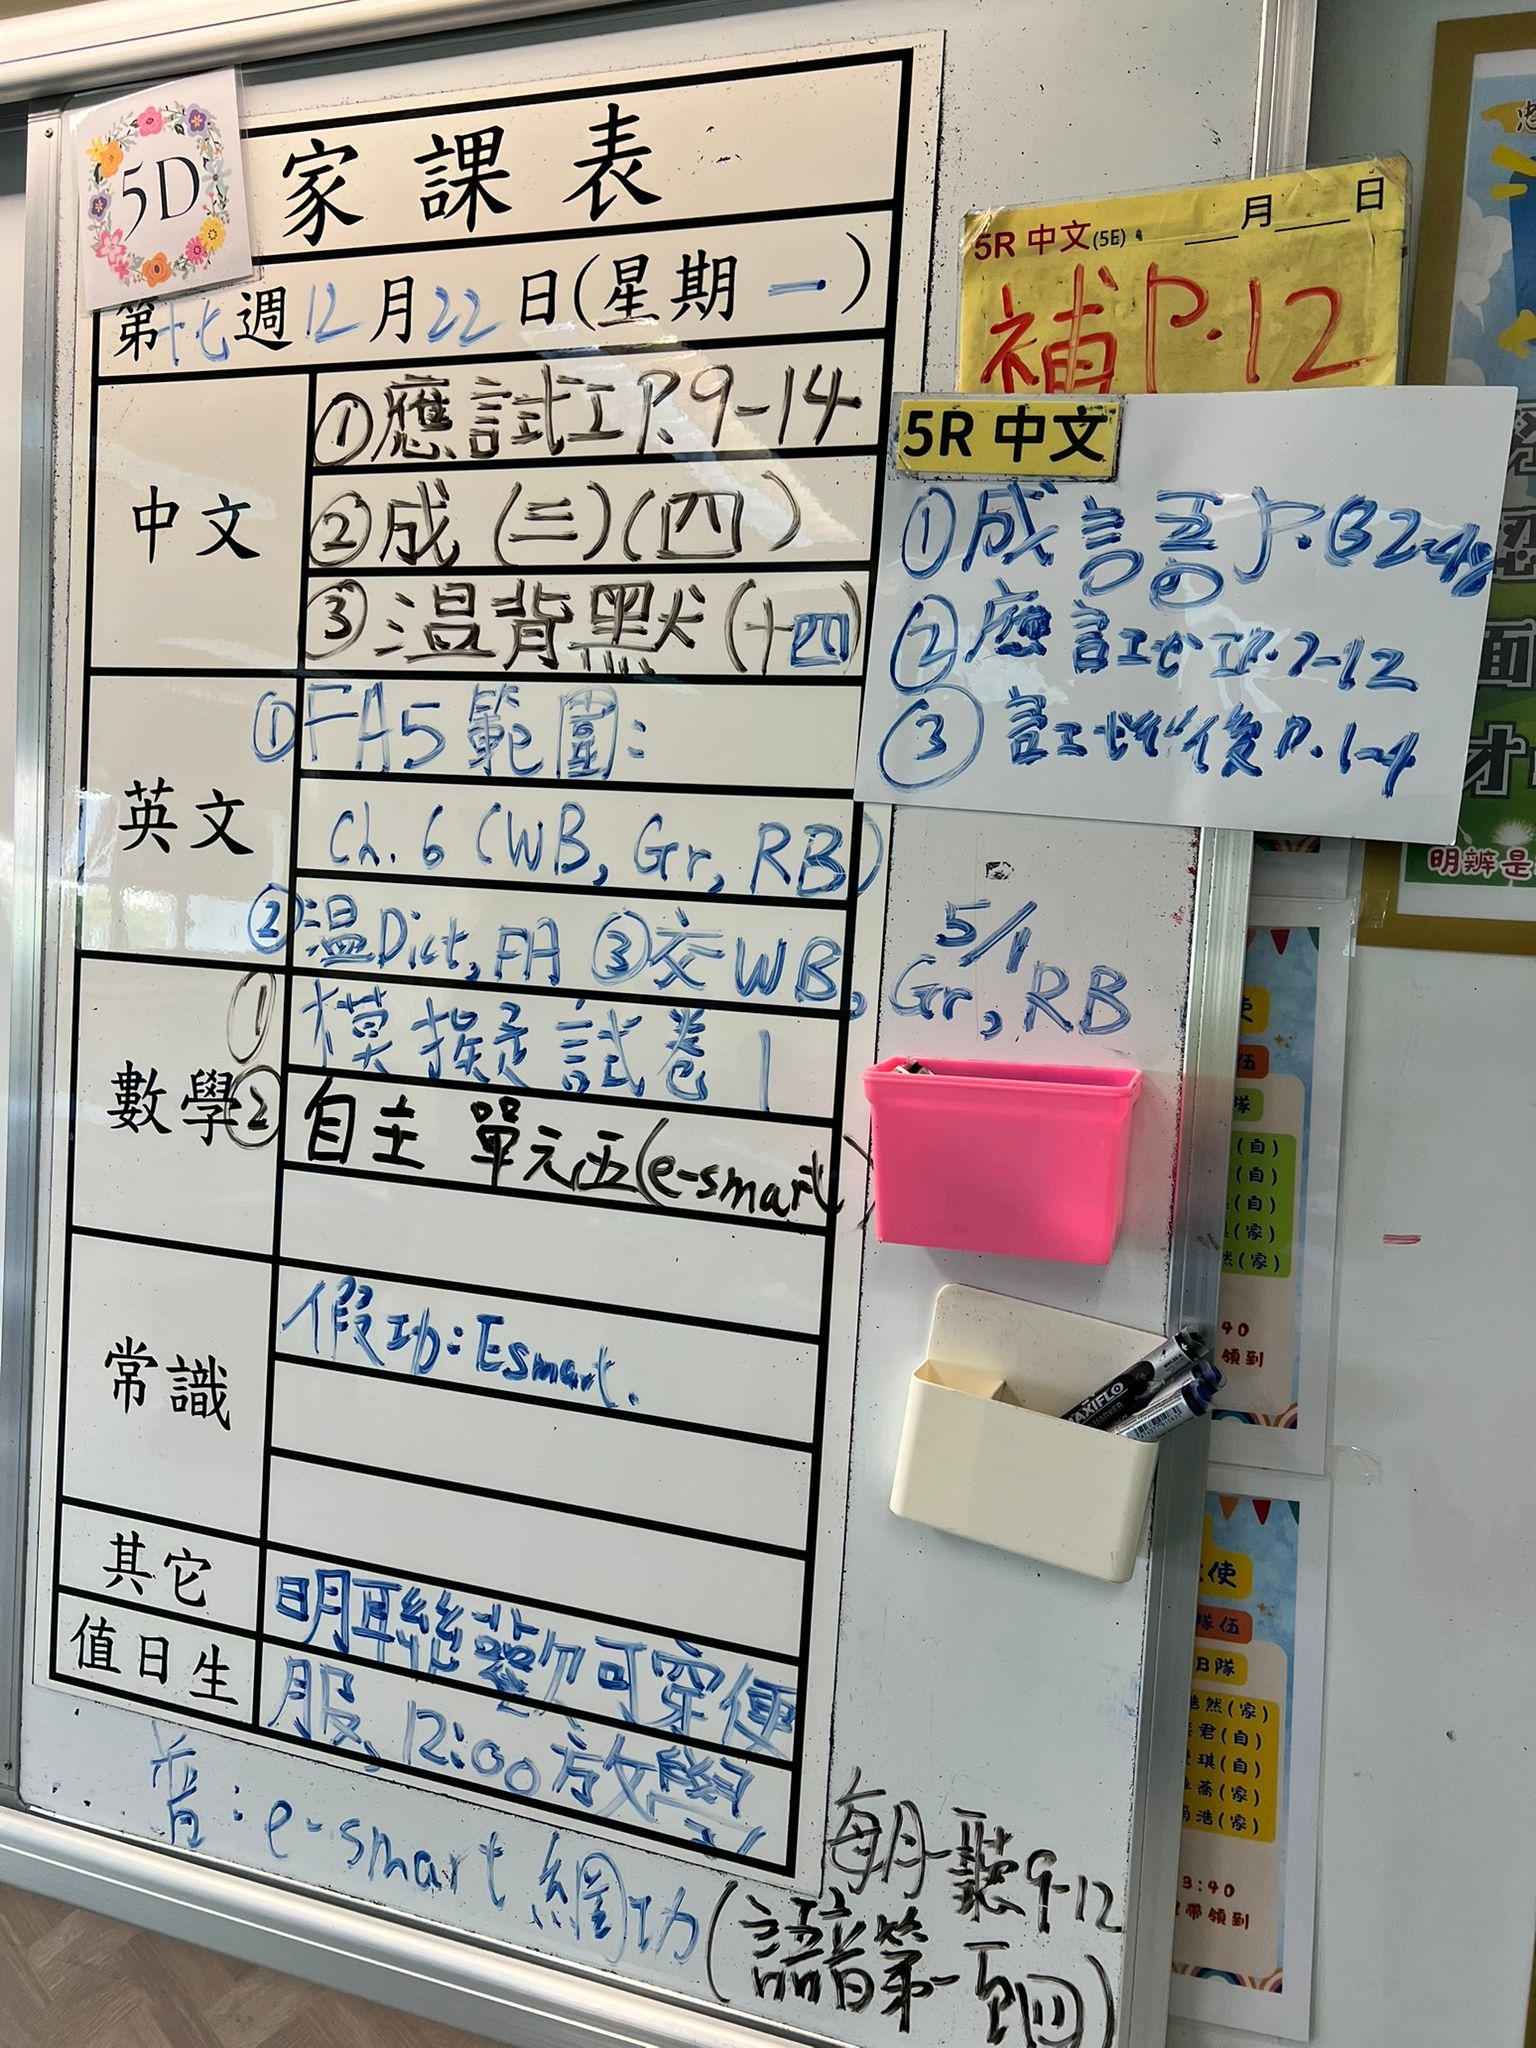 5D
家課表
第十七週12月22日(星期一)
中文
①應試工P.9-14
②成(三)(四)
③溫背默(十四
英文
①FA5範圍:
Ch. 6 (WB, Gr, RB)
②溫Dict, FA ③交WB, Gr, RB
5/1
數學
①模擬試卷1
②自主 單元五(e-smart)
常識
假功:Esmart.
其它
明聯歡可穿便
值日生
服, 12:00放學
音:e-smart 網功
每月一聽9-12
(語音第一
回)
5R 中文(5E)
月 日
補P.12
5R 中文
①成語P.
②應試工P.7-12
③後P.1-4
明辨是
(自)
(自)
(自)
(家)
然(家)
40
領到
使
隊伍
B隊
浩然(家)
君(自)
琪(自)
喬(家)
浩(家)
3:40
帶領到